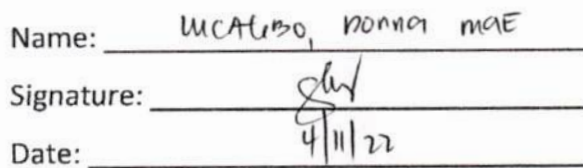 Name: LUCAGBO, Donna Mae
Signature:
Date: 4/11/22